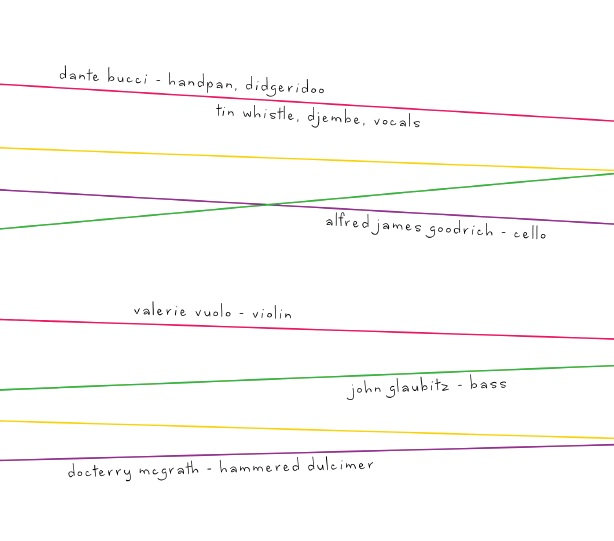 dante bucci - handpan, didgeridoo
tin whistle, djembe, vocals
alfred james goodrich - cello
valerie vuolo - violin
john glaubitz - bass
docterry mcgrath - hammered dulcimer